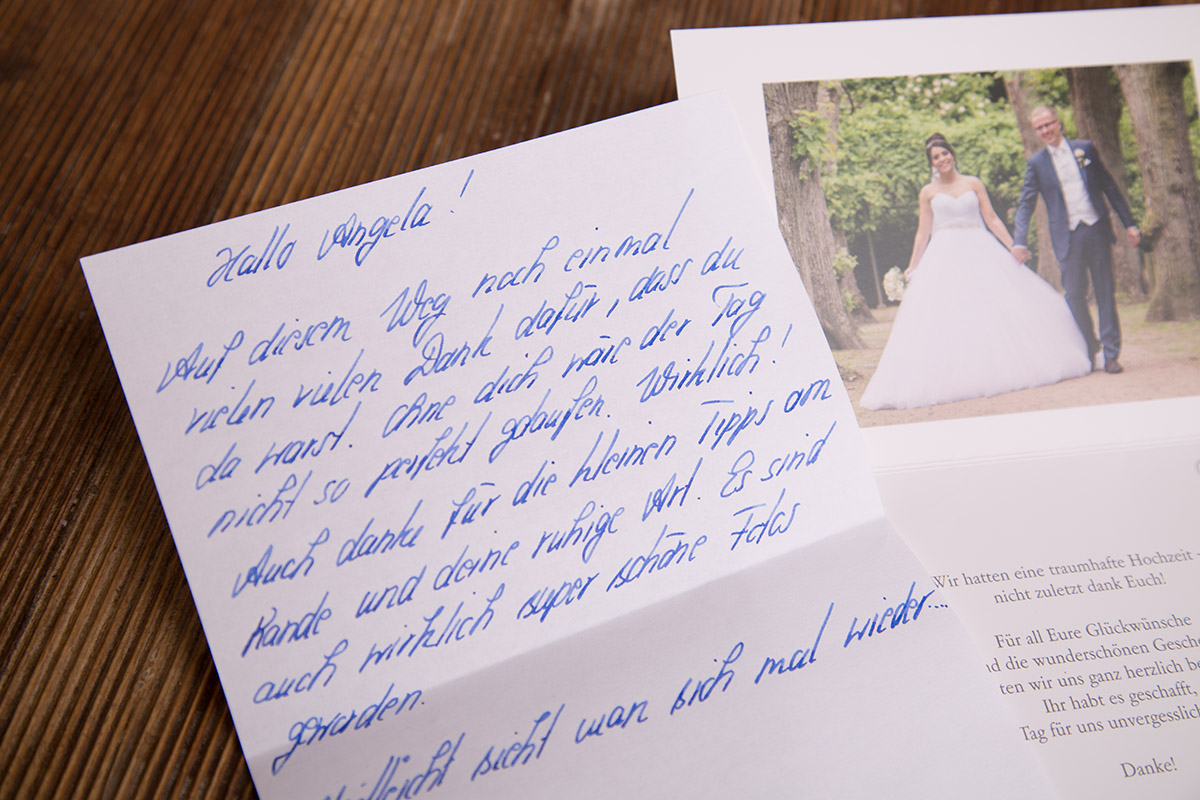 Hallo Angela!
Auf diesem Weg noch einmal
vielen vielen Dank dafür, dass du
da warst. Ohne dich wäre der Tag
nicht so perfekt gelaufen. Wirklich!
Auch danke für die kleinen Tipps am
Rande und deine ruhige Art. Es sind
auch wirklich super schöne Fotos
geworden.
Vielleicht sieht man sich mal wieder...
Wir hatten eine traumhafte Hochzeit -
nicht zuletzt dank Euch!
Für all Eure Glückwünsche
die wunderschönen
wir uns ganz herzlich
Ihr habt es geschafft,
Tag für uns
Danke!